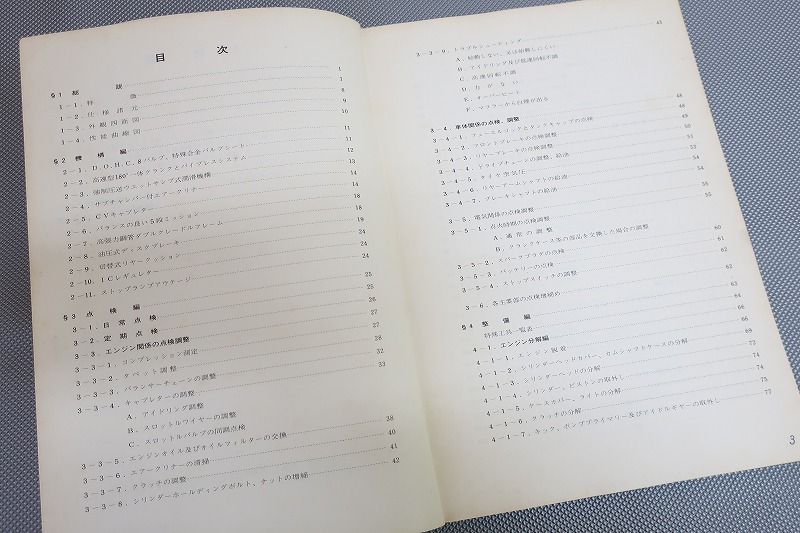 目 次
§1 総 説 1
1-1.特 徴 7
1-2.仕様諸元 8
1-3.外観四面図 9
1-4.性能曲線図 10
§2 機 構 編 11
2-1.D.O.H.C,8バルブ,特殊合金バルブシート 11
2-2.高速型180°一体クランクとバイブレスシステム 12
2-3.強制圧送ウエットサンプ式潤滑機構 13
2-4.サブチャンバー付エアークリーナー 14
2-5.CVキャブレター 14
2-6.バランスの良い5段ミッション 18
2-7.高張力鋼管ダブルクレードルフレーム 19
2-8.油圧式ディスクブレーキ 24
2-9.切替式リヤークッション 24
2-10.ICレギュレター 24
2-11.ストップランプアウテージ 25
§3 点 検 編 25
3-1.日常点検 26
3-2.定期点検 27
3-3.エンジン関係の点検調整 27
3-3-1.コンプレッション測定 28
3-3-2.タペット調整 32
3-3-3.バランサーチェーンの調整 33
3-3-4.キャブレターの調整
A.アイドリング調整
B.スロットルワイヤーの調整
C.スロットルバルブの同調点検
3-3-5.エンジンオイル及びオイルフィルターの交換 38
3-3-6.エアークリーナーの清掃 40
3-3-7.クラッチの調整 41
3-3-8.シリンダーホールディングボルト,ナットの増締 42
3-3-9.トラブルシューティング 43
A.始動しない,又は始動しにくい
B.アイドリング及び低速回転不調
C.高速回転不調
D.力がない
E.オーバーヒート
F.マフラーから白煙が出る
3-4.車体関係の点検,調整 48
3-4-1.フューエルコックとタンクキャップの点検 48
3-4-2.フロントブレーキの点検調整 49
3-4-3.リヤーブレーキの点検調整 50
3-4-4.ドライブチェーンの調整,給油 51
3-4-5.タイヤ空気圧 53
3-4-6.リヤーアームシャフトの給油 54
3-4-7.ブレーキシャフトの給油 54
3-5.電気関係の点検調整 55
3-5-1.点火時期の点検調整 55
A.通常の調整
B.クランクケース等の部品を交換した場合の調整
3-5-2.スパークプラグの点検 60
3-5-3.バッテリーの点検 61
3-5-4.ストップスイッチの調整 62
3-6.各主要部の点検増締め 62
§4 整 備 編 63
特殊工具一覧表 64
4-1.エンジン分解編 66
4-1-1.エンジン脱着 66
4-1-2.シリンダーヘッドカバー,カムシャフトケースの分解 69
4-1-3.シリンダーヘッドの分解 72
4-1-4.シリンダー,ピストンの取外し 74
4-1-5.ケースカバー,ライトの分解 74
4-1-6.クラッチの分解 75
4-1-7.キック,ポンププライマリー及びアイドルギヤーの取外し 77
3